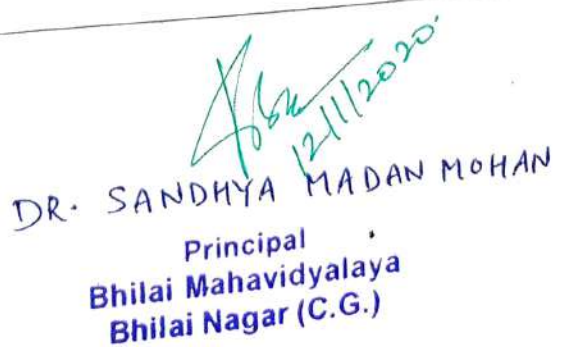 12/11/2020
DR. SANDHYA MADAN MOHAN
Principal
Bhilai Mahavidyalaya
Bhilai Nagar (C.G.)